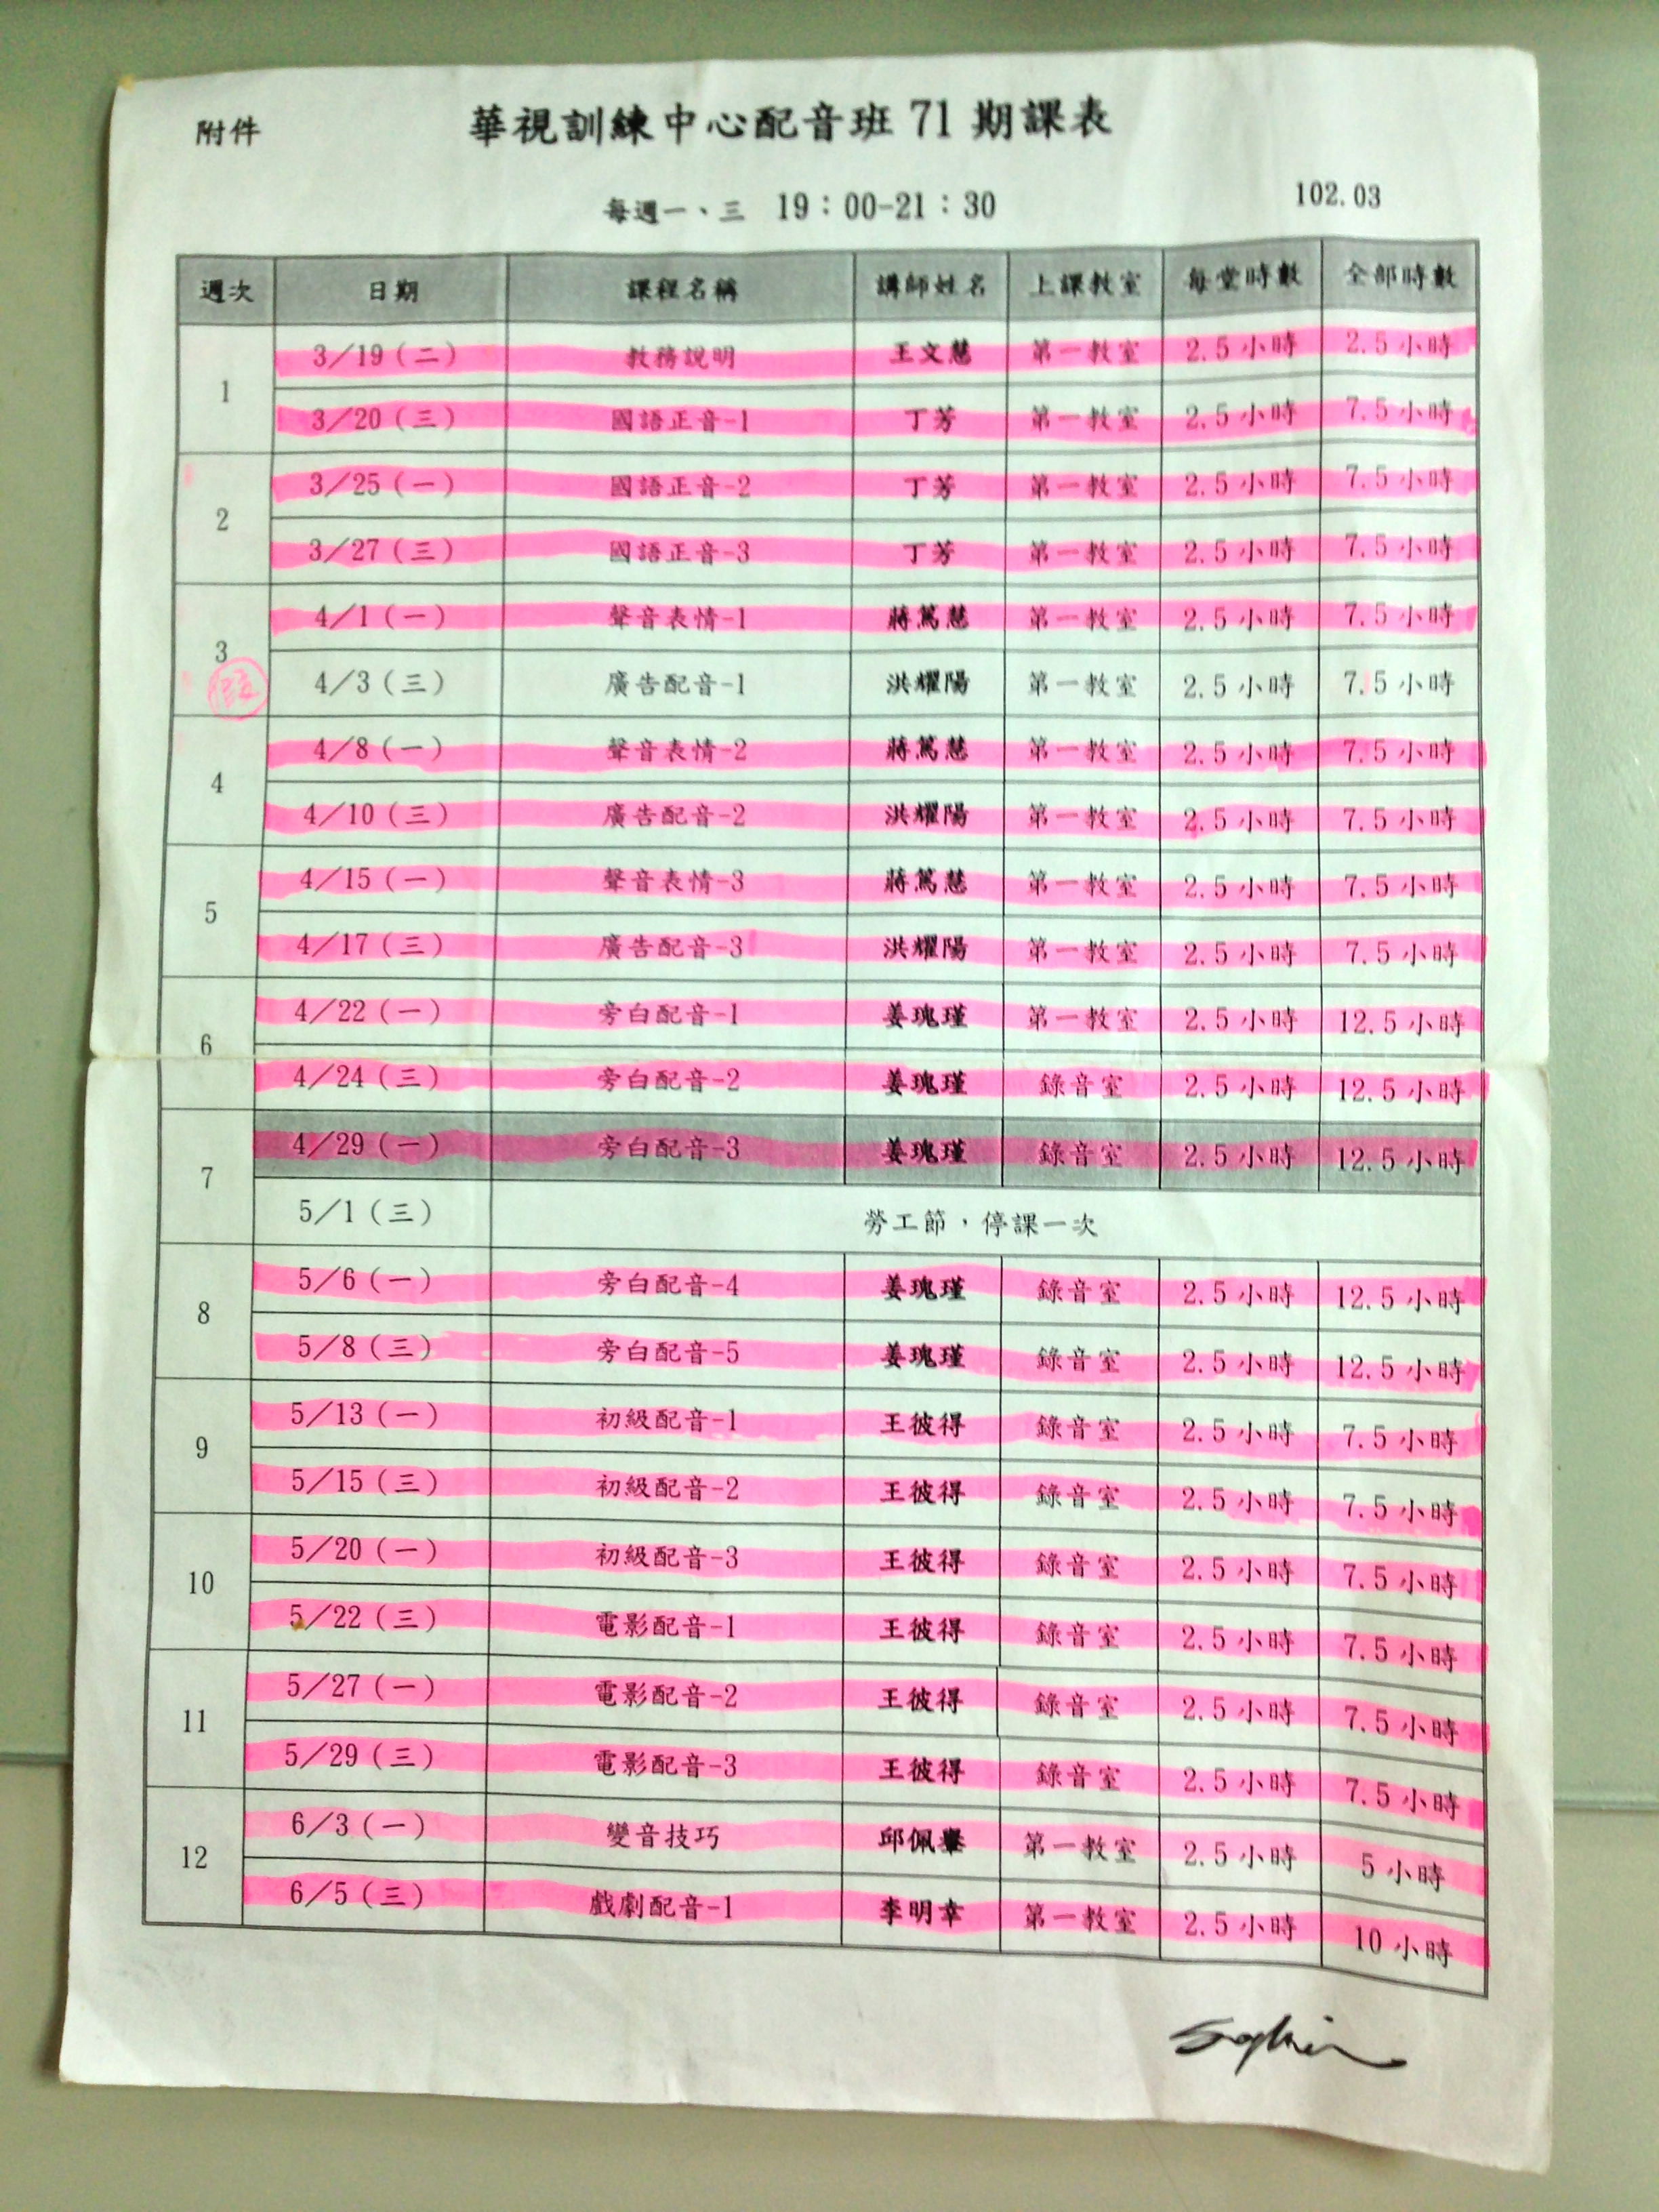 附件
華視訓練中心配音班 71 期課表
每週一、三 19：00-21：30
102.03
週次 日期 課程名稱 講師姓名 上課教室 每堂時數 全部時數
1
3／19（二） 教務說明 王文慧 第一教室 2.5 小時 2.5 小時
3／20（三） 國語正音-1 丁芳 第一教室 2.5 小時 7.5 小時
2
3／25（一） 國語正音-2 丁芳 第一教室 2.5 小時 7.5 小時
3／27（三） 國語正音-3 丁芳 第一教室 2.5 小時 7.5 小時
3
4／1（一） 聲音表情-1 蔣篤慧 第一教室 2.5 小時 7.5 小時
4／3（三） 廣告配音-1 洪耀陽 第一教室 2.5 小時 7.5 小時
4
4／8（一） 聲音表情-2 蔣篤慧 第一教室 2.5 小時 7.5 小時
4／10（三） 廣告配音-2 洪耀陽 第一教室 2.5 小時 7.5 小時
5
4／15（一） 聲音表情-3 蔣篤慧 第一教室 2.5 小時 7.5 小時
4／17（三） 廣告配音-3 洪耀陽 第一教室 2.5 小時 7.5 小時
6
4／22（一） 旁白配音-1 姜瑰瑾 第一教室 2.5 小時 12.5 小時
4／24（三） 旁白配音-2 姜瑰瑾 錄音室 2.5 小時 12.5 小時
7
4／29（一） 旁白配音-3 姜瑰瑾 錄音室 2.5 小時 12.5 小時
5／1（三） 勞工節，停課一次
8
5／6（一） 旁白配音-4 姜瑰瑾 錄音室 2.5 小時 12.5 小時
5／8（三） 旁白配音-5 姜瑰瑾 錄音室 2.5 小時 12.5 小時
9
5／13（一） 初級配音-1 王彼得 錄音室 2.5 小時 7.5 小時
5／15（三） 初級配音-2 王彼得 錄音室 2.5 小時 7.5 小時
10
5／20（一） 初級配音-3 王彼得 錄音室 2.5 小時 7.5 小時
5／22（三） 電影配音-1 王彼得 錄音室 2.5 小時 7.5 小時
11
5／27（一） 電影配音-2 王彼得 錄音室 2.5 小時 7.5 小時
5／29（三） 電影配音-3 王彼得 錄音室 2.5 小時 7.5 小時
12
6／3（一） 變音技巧 邱佩轝 第一教室 2.5 小時 5 小時
6／5（三） 戲劇配音-1 李明幸 第一教室 2.5 小時 10 小時